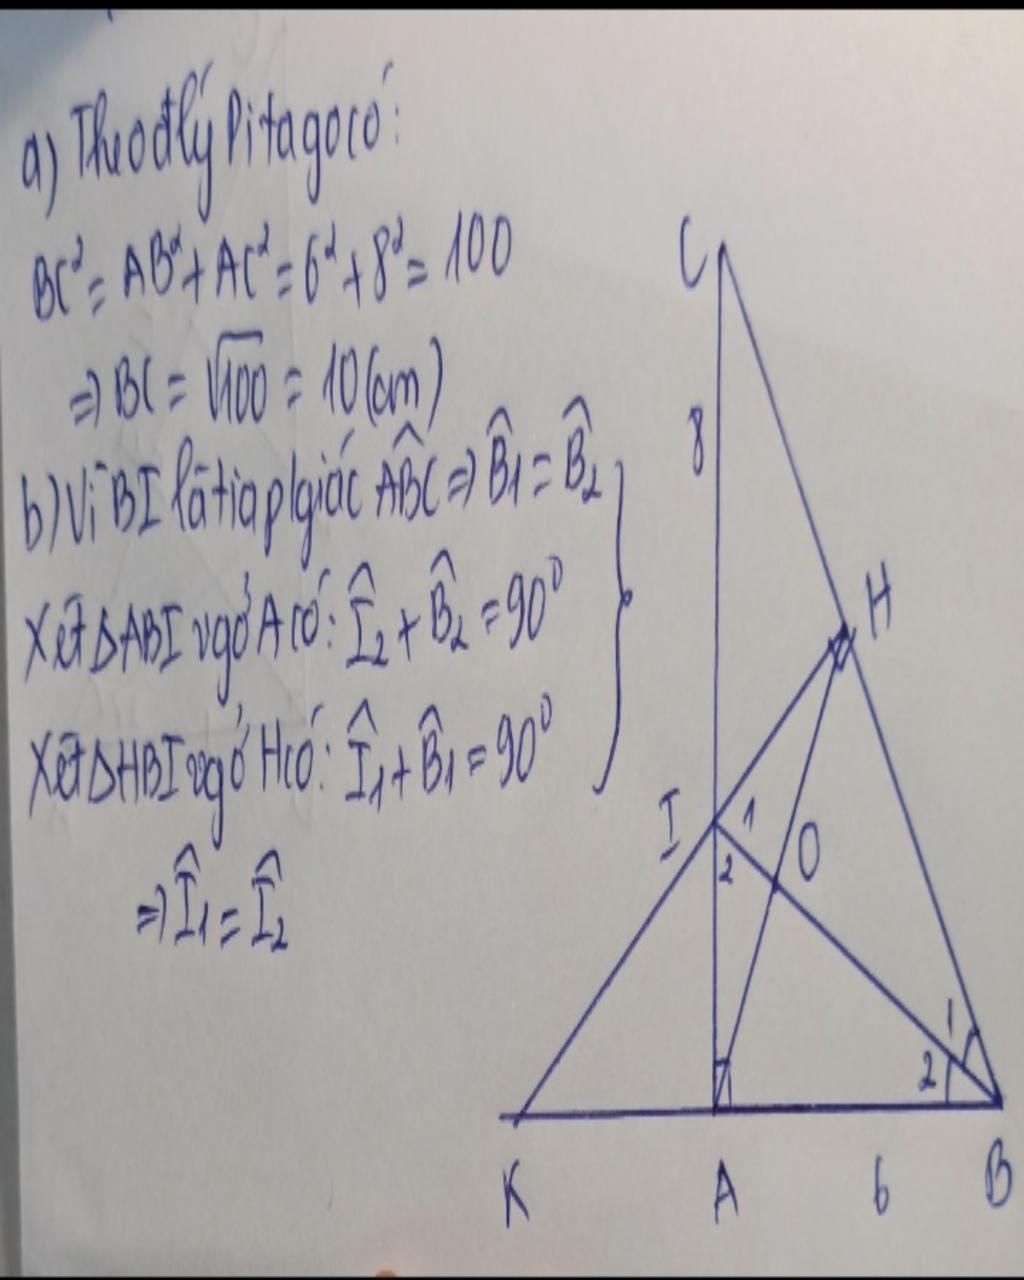 a) Theo đlý Pitago có:
BC² = AB² + AC² = 6² + 8² = 100
⇒ BC = √100 = 10 (cm)
b) Vì BI là tia p/giác \widehat{ABC} ⇒ \widehat{B}₁ = \widehat{B}₂
Xét ΔABI vg ở A có: \widehat{I}₂ + \widehat{B}₂ = 90⁰
Xét ΔHBI vg ở H có: \widehat{I}₁ + \widehat{B}₁ = 90⁰
⇒ \widehat{I}₁ = \widehat{I}₂
C
8
H
I 1
2
O
1
2
K A 6 B